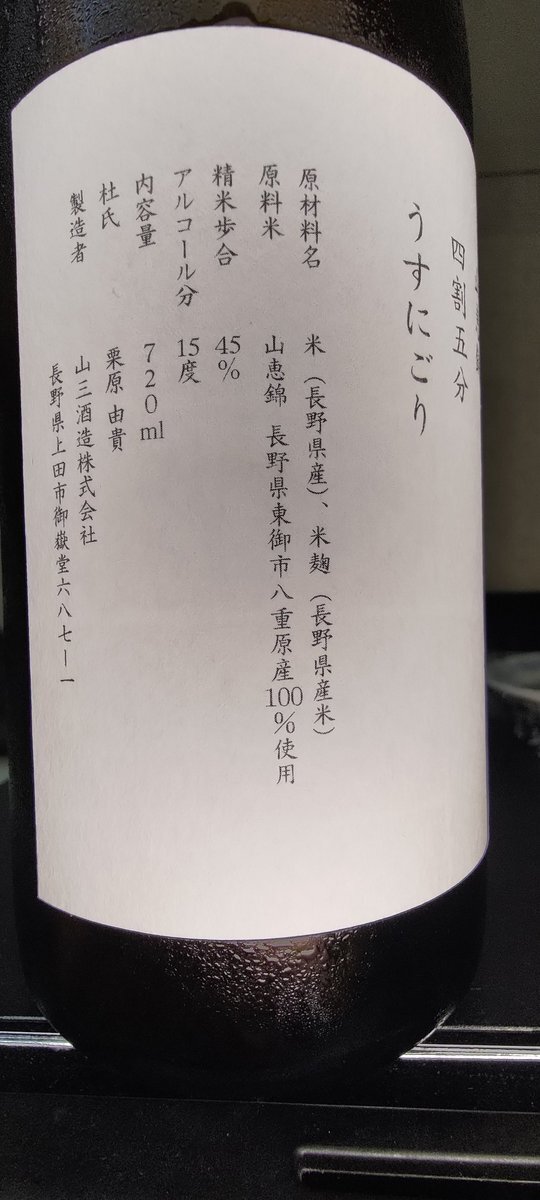 四割五分
うすにごり
原材料名 米（長野県産）、米麹（長野県産米）
原料米 山恵錦 長野県東御市八重原産100%使用
精米歩合 45%
アルコール分 15度
内容量 720ml
杜氏 栗原 由貴
製造者 山三酒造株式会社
長野県上田市御嶽堂六八七－一